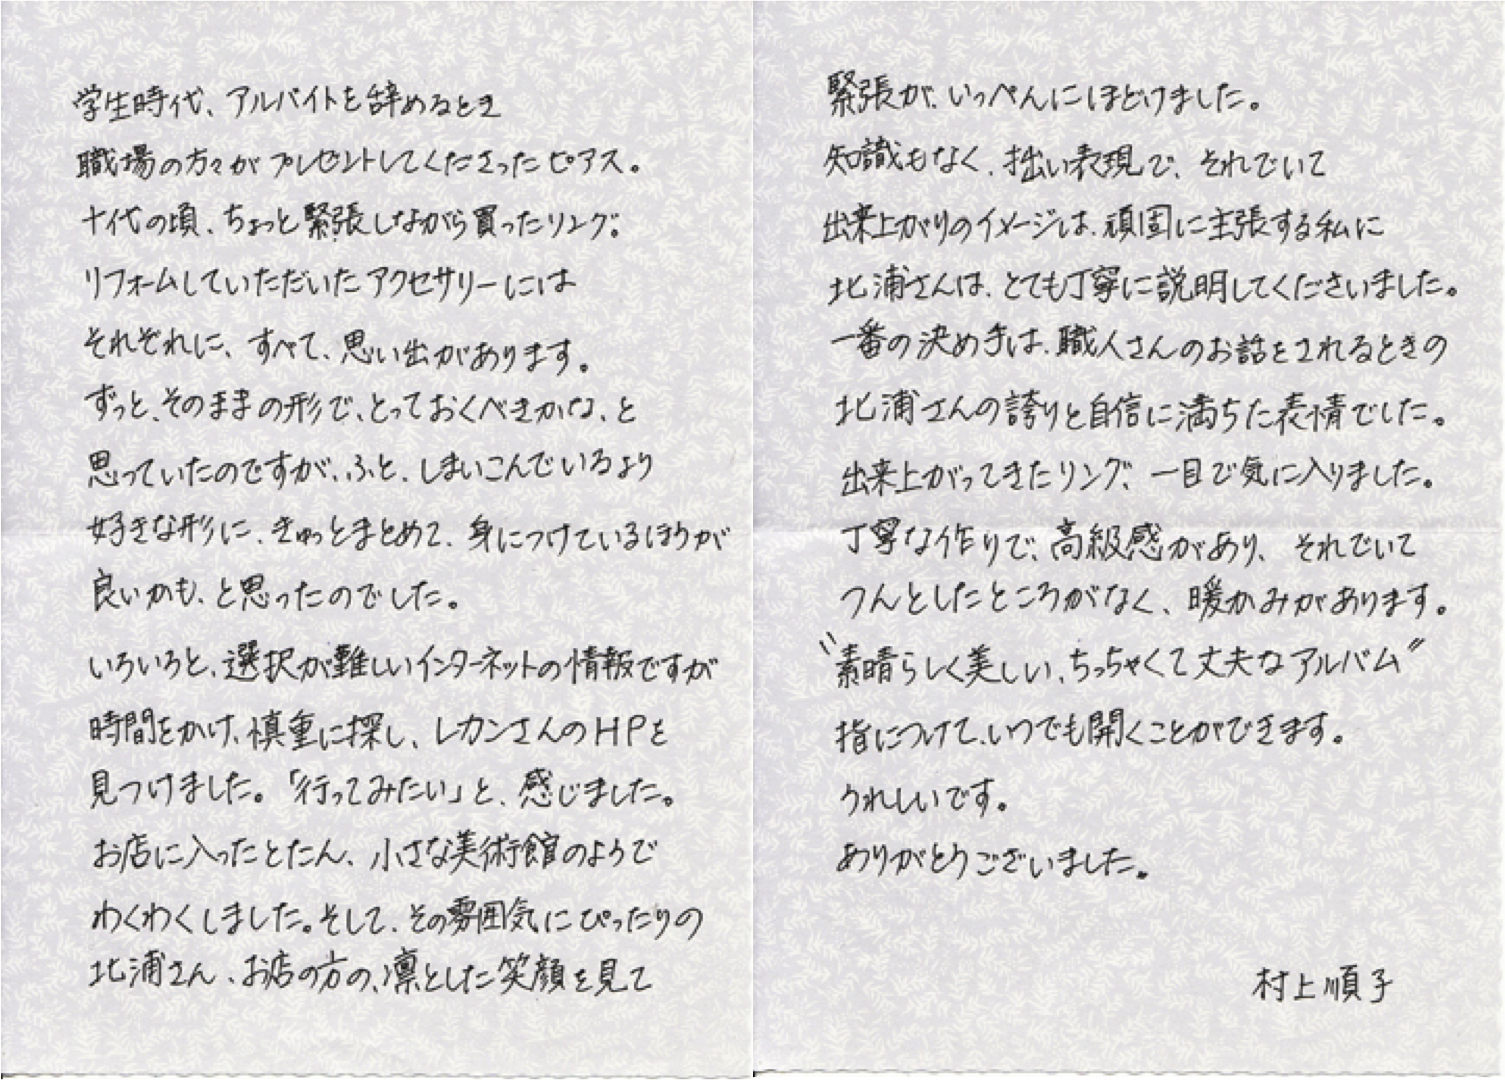 学生時代、アルバイトを辞めるとき
職場の方々がプレゼントしてくださったピアス。
十代の頃、ちょっと緊張しながら買ったリング。
リフォームしていただいたアクセサリーには
それぞれに、すべて、思い出があります。
ずっと、そのままの形で、とっておくべきかな、と
思っていたのですが、ふと、しまいこんでいるより
好きな形に、きゅっとまとめて、身につけているほうが
良いかも、と思ったのでした。
いろいろと、選択が難しいインターネットの情報ですが
時間をかけ、慎重に探し、レカンさんのHPを
見つけました。「行ってみたい」と、感じました。
お店に入ったとたん、小さな美術館のようで
わくわくしました。そして、その雰囲気にぴったりの
北浦さん、お店の方の、凛とした笑顔を見て
緊張が、いっぺんにほどけました。
知識もなく、拙い表現で、それでいて
出来上がりのイメージは、頑固に主張する私に
北浦さんは、とても丁寧に説明してくださいました。
一番の決め手は、職人さんのお話をされるときの
北浦さんの誇りと自信に満ちた表情でした。
出来上がってきたリング、一目で気に入りました。
丁寧な作りで、高級感があり、それでいて
つんとしたところがなく、暖かみがあります。
"素晴らしく美しい、ちっちゃくて丈夫なアルバム"
指につけて、いつでも開くことができます。
うれしいです。
ありがとうございました。
村上順子